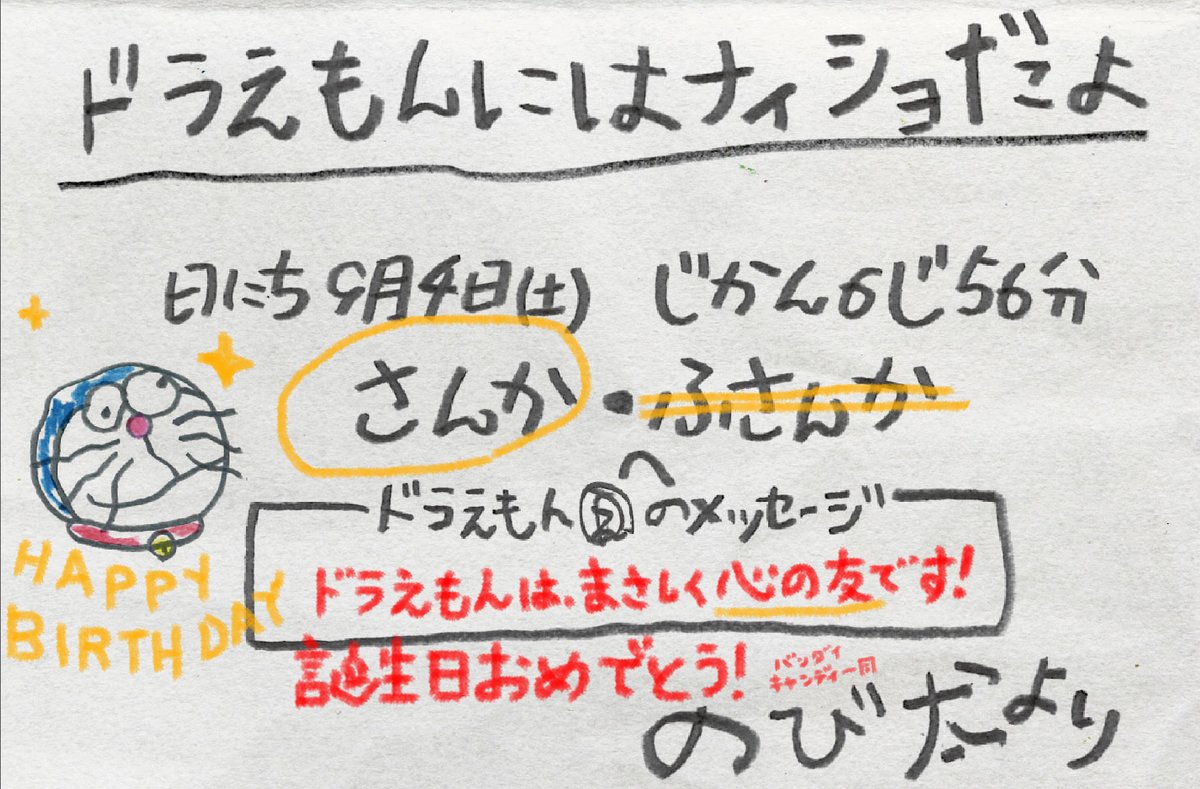 ドラえもんにはナイショだよ
日にち9月4日(土) じかん6じ56分
さんか・ふさんか
ドラえもんへのメッセージ
ドラえもんは、まさしく心の友です!
HAPPY BIRTHDAY
誕生日おめでとう!
バンダイ
キャンディ一同
のびたより